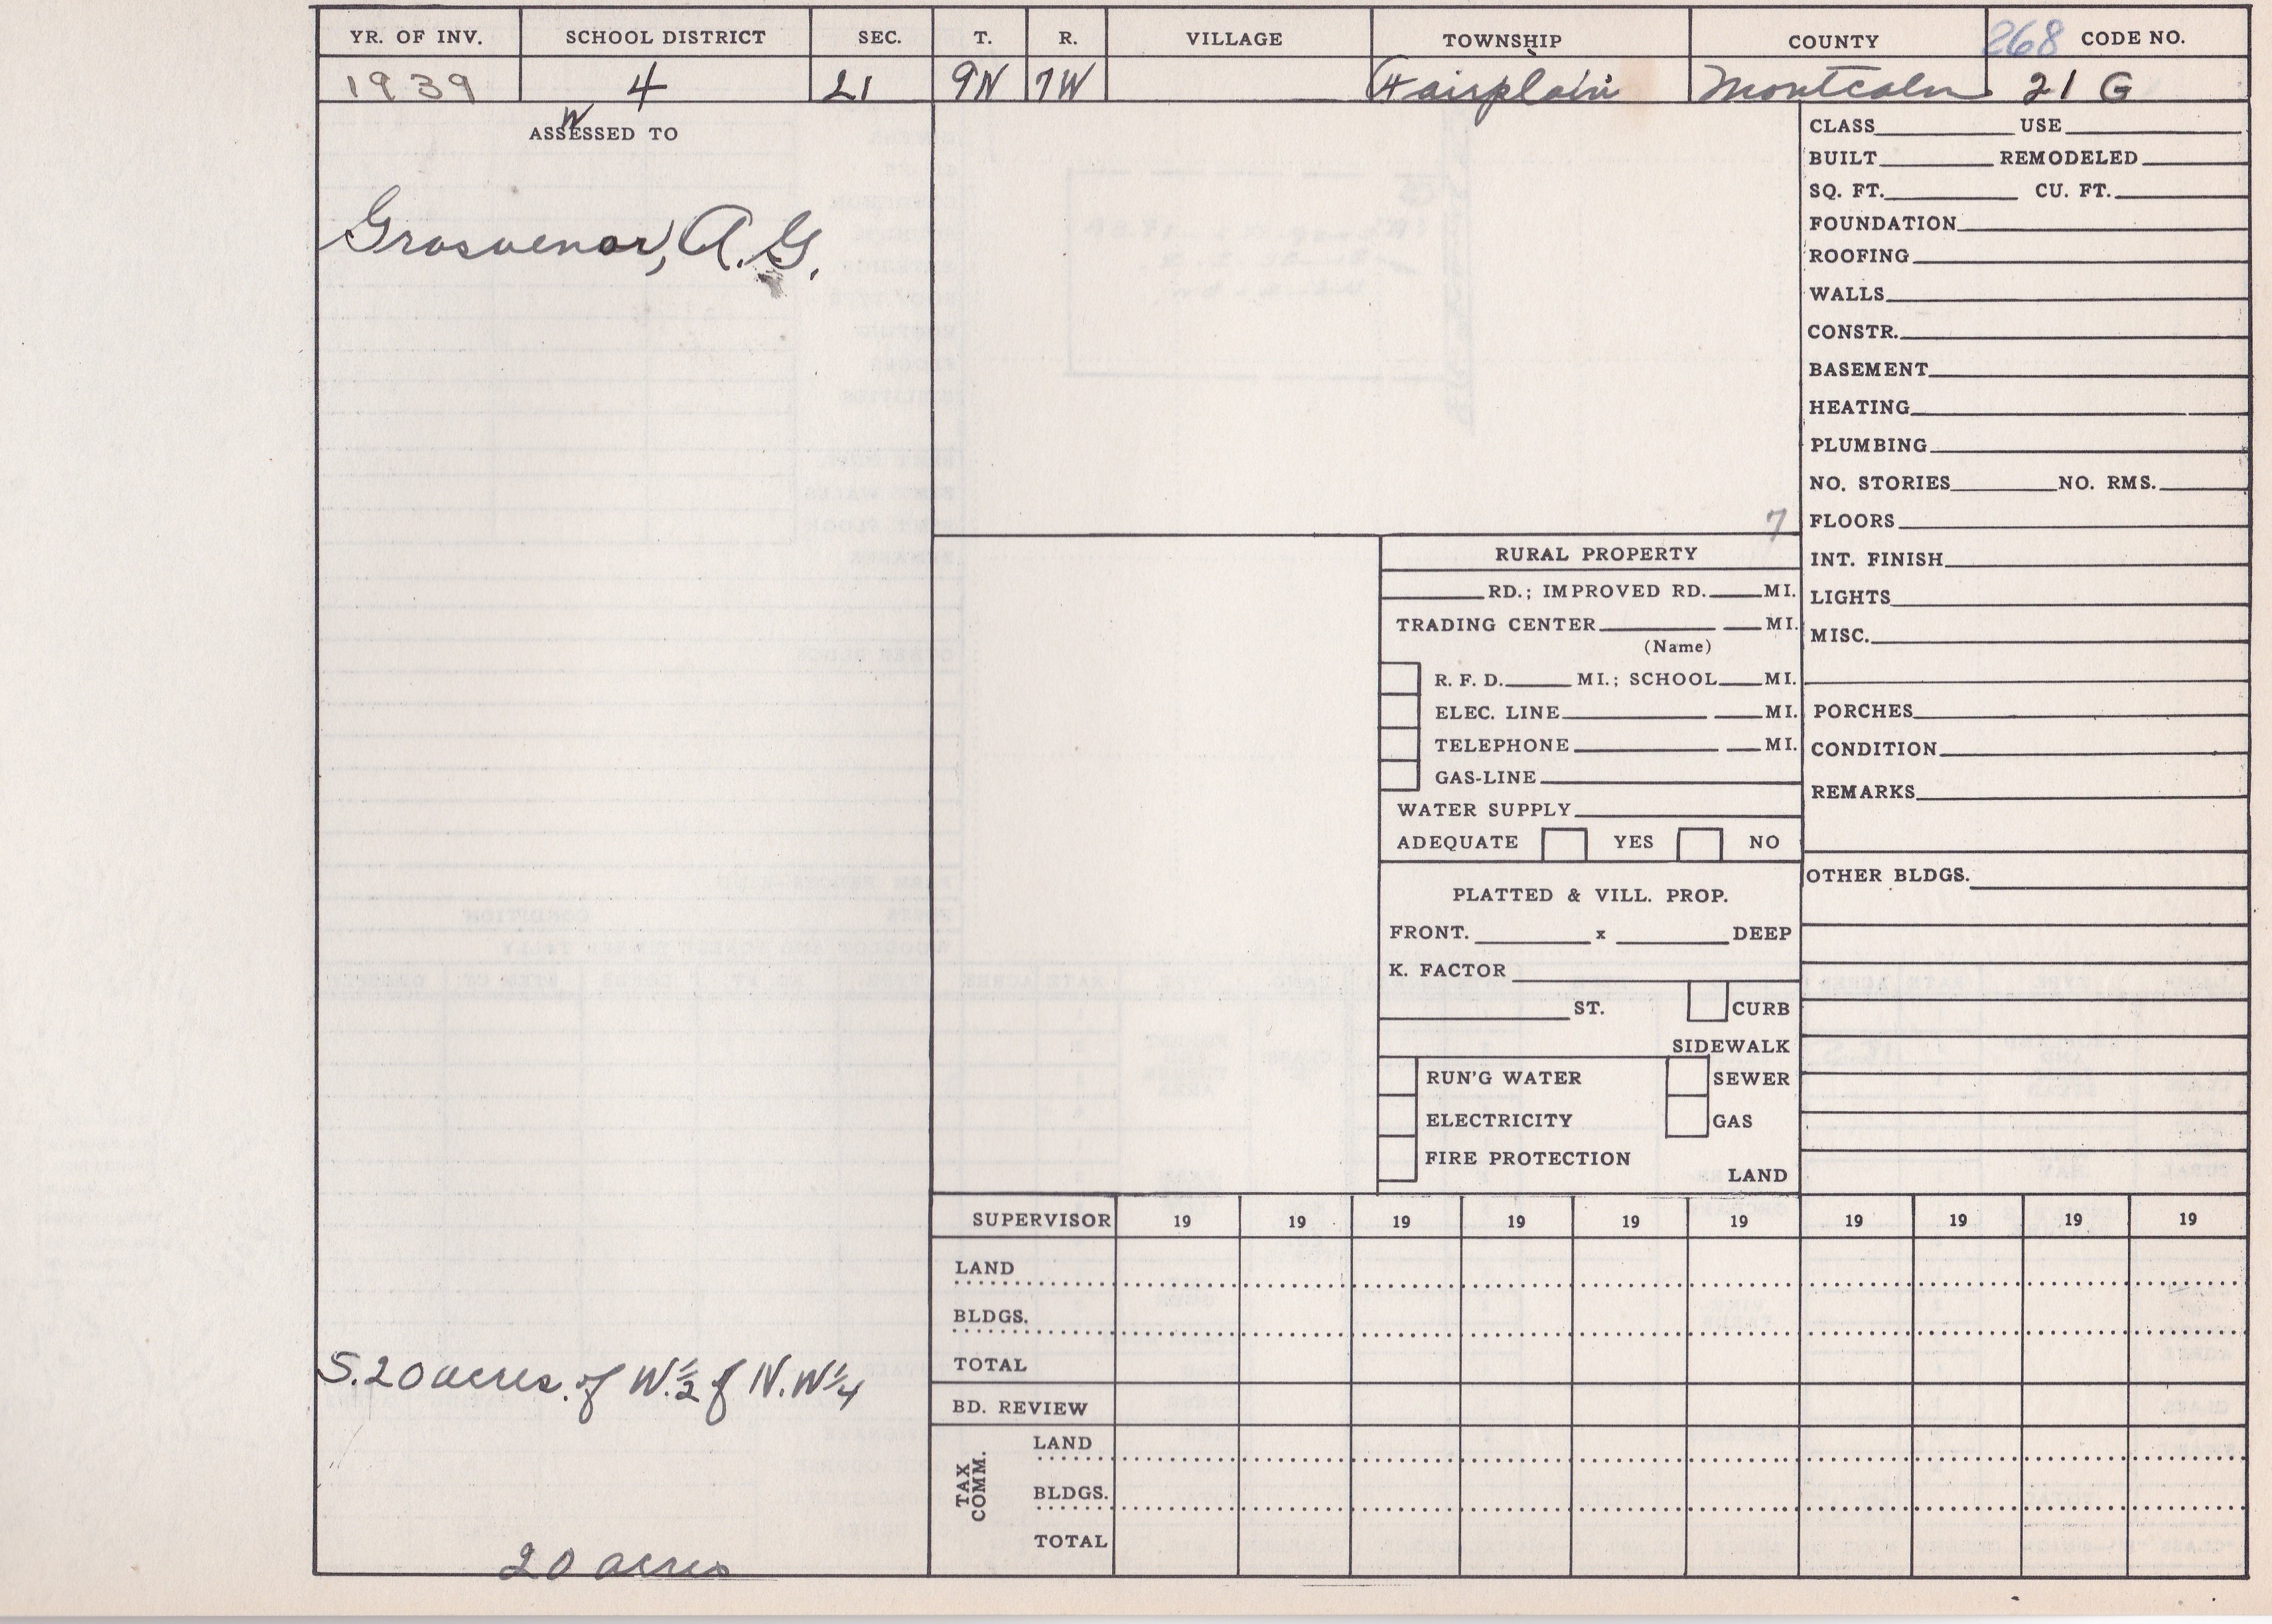 YR. OF INV. SCHOOL DISTRICT SEC. T. R. VILLAGE TOWNSHIP COUNTY 268 CODE NO.
1939 4 21 9N 7W Fairplain Montcalm 21 G
W
ASSESSED TO
Grosvenor, A. G.
S. 20 acres of W. 1/2 of N. W 1/4
20 acres
7
RURAL PROPERTY
RD.; IMPROVED RD. MI.
TRADING CENTER MI.
(Name)
R. F. D. MI.; SCHOOL MI.
ELEC. LINE MI.
TELEPHONE MI.
GAS-LINE
WATER SUPPLY
ADEQUATE YES NO
PLATTED & VILL. PROP.
FRONT. x DEEP
K. FACTOR
ST. CURB
SIDEWALK
RUN'G WATER SEWER
ELECTRICITY GAS
FIRE PROTECTION
LAND
CLASS USE
BUILT REMODELED
SQ. FT. CU. FT.
FOUNDATION
ROOFING
WALLS
CONSTR.
BASEMENT
HEATING
PLUMBING
NO. STORIES NO. RMS.
FLOORS
INT. FINISH
LIGHTS
MISC.
PORCHES
CONDITION
REMARKS
OTHER BLDGS.
SUPERVISOR 19 19 19 19 19 19 19 19 19 19
LAND
BLDGS.
TOTAL
BD. REVIEW
TAX COMM.
LAND
BLDGS.
TOTAL